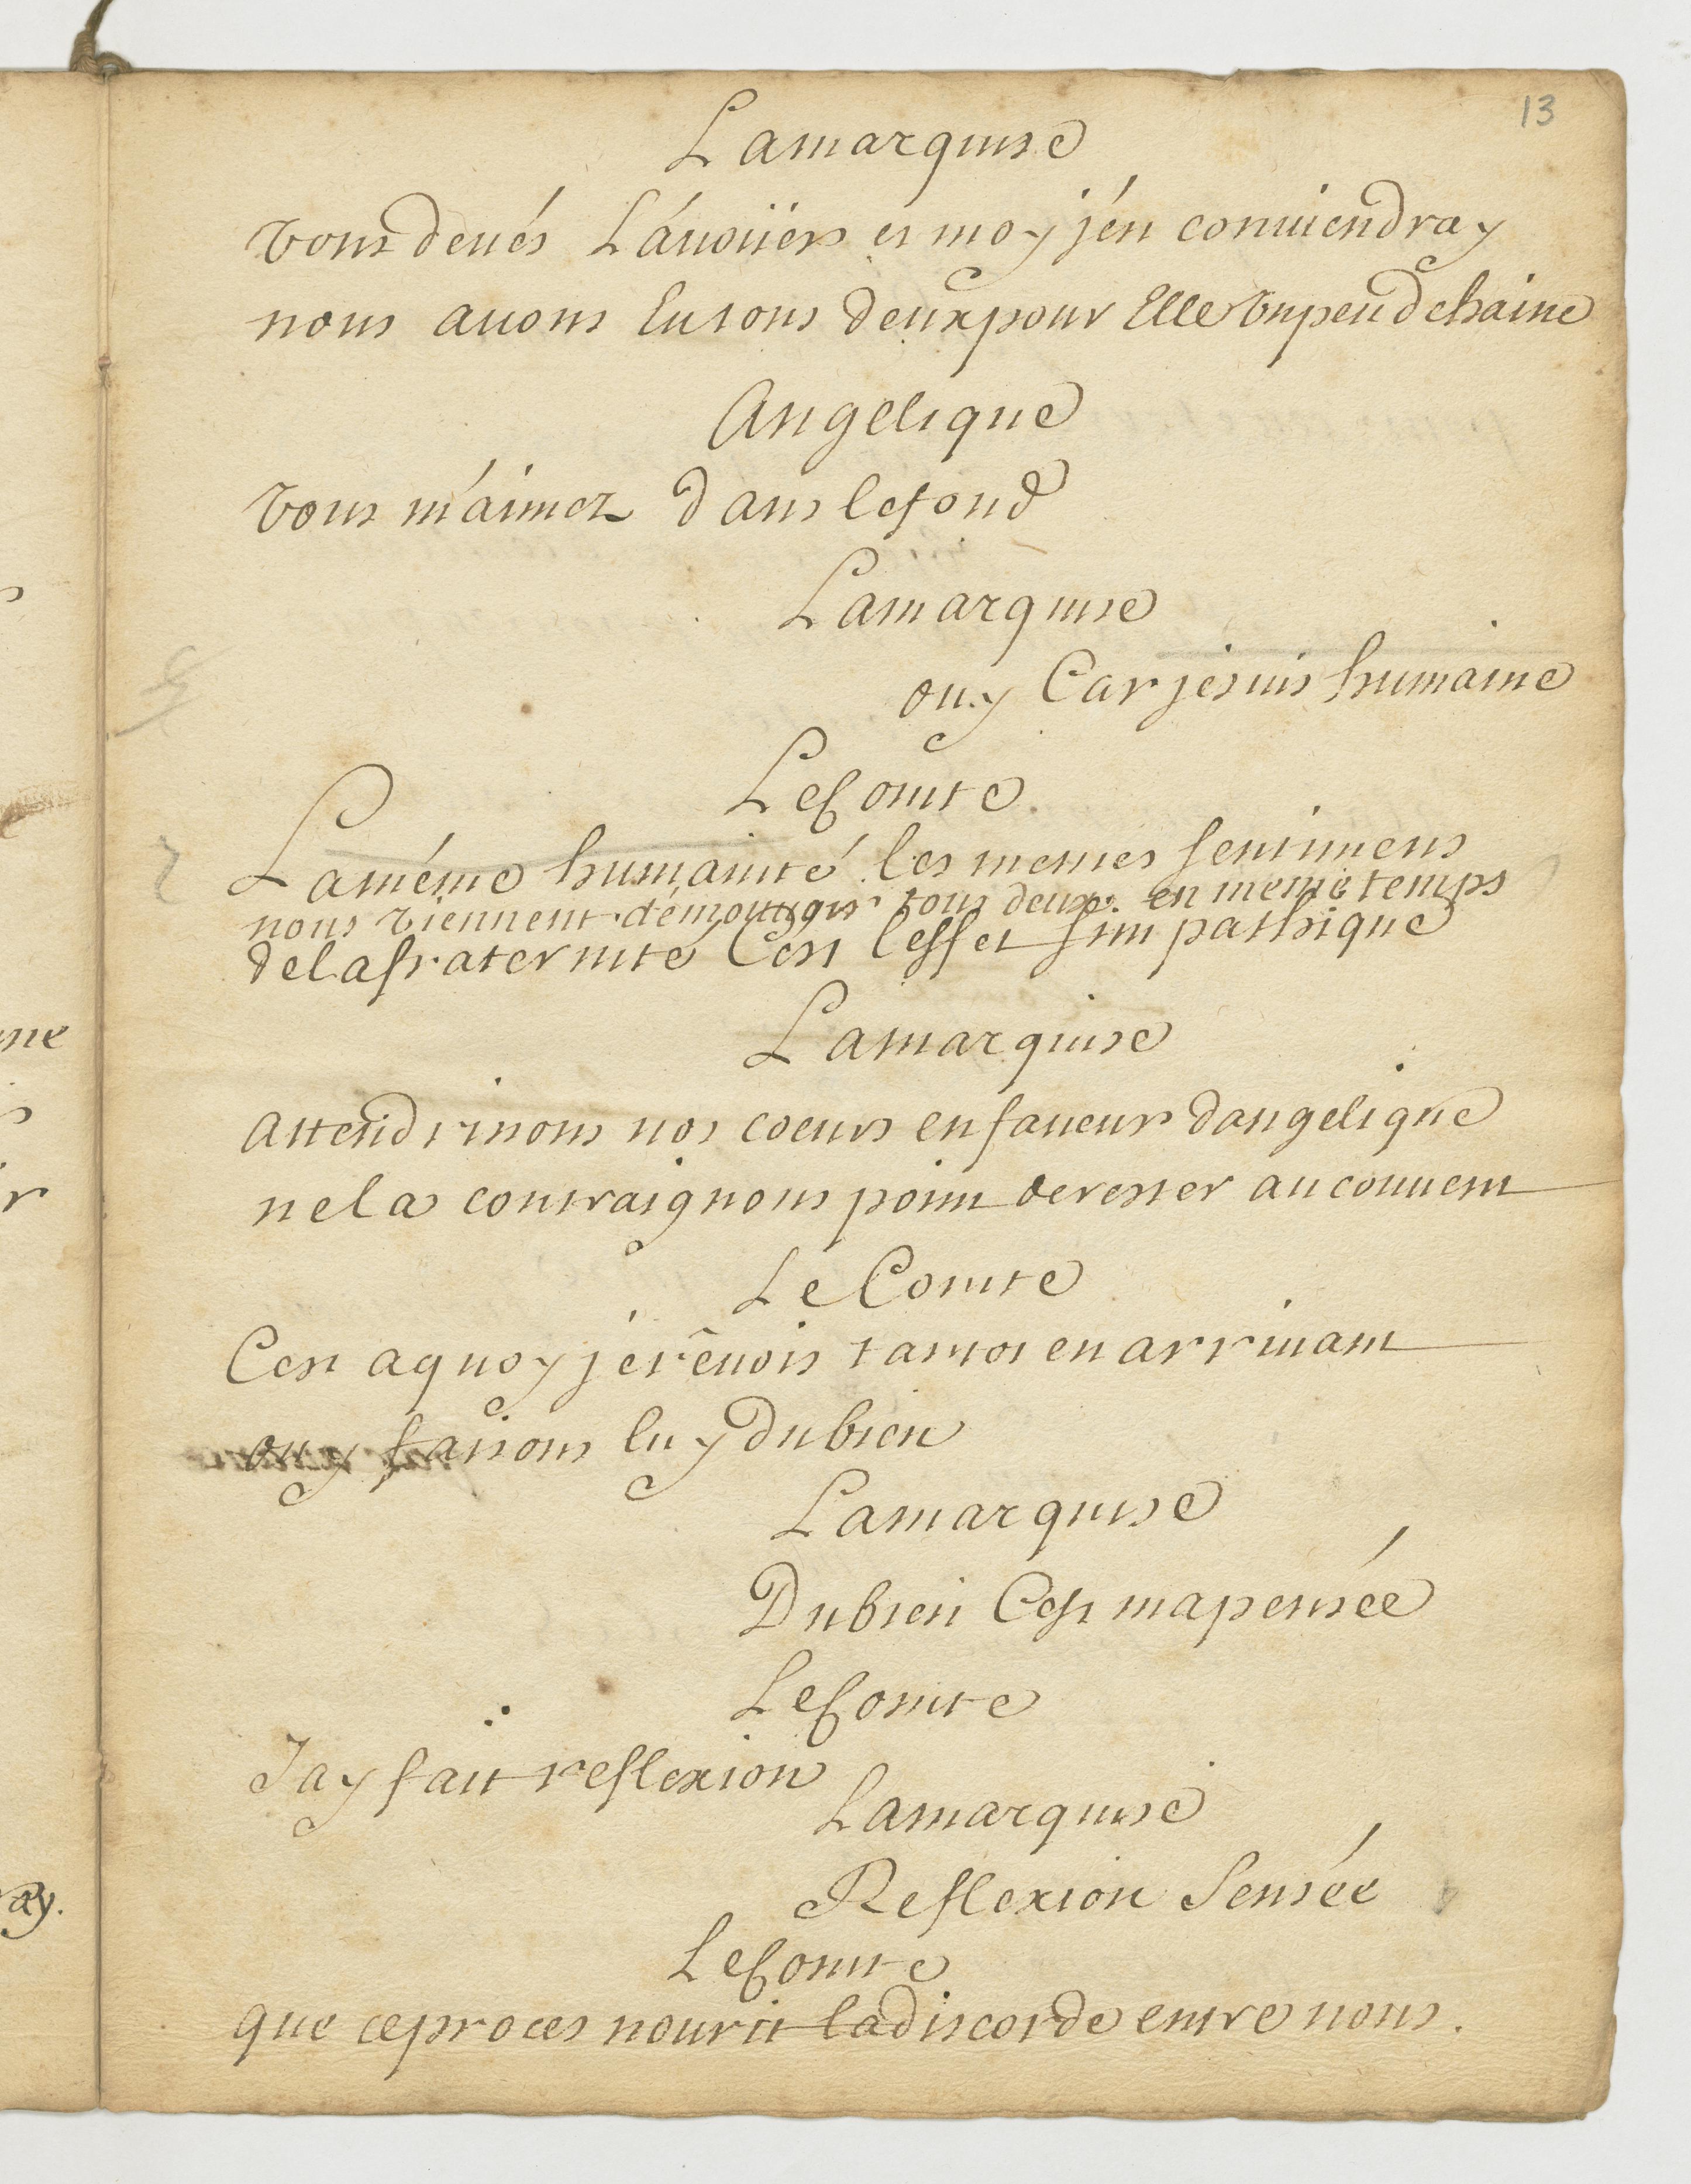 13
Lamarquise
Vous deués L'áuoüer et moy j'en conuiendray
nous auons Eu tous deux pour Elle Un peu d'haine
Angelique
Vous m'aimez dans le fond
Lamarquise
ouy Car je suis humaine
Le Comte
La méme humanité les memes sentimens
nous viennent tous deux en meme temps
de la fraternité C'est l'effet simpathique
Lamarquise
attendrissons nos coeurs en faueur d'angelique
ne la contraignons point de rester au couuent
Le Comte
C'est a quoy je rêuois tantot en arriuant
ouy faisons luy du bien
Lamarquise
Du bien C'est ma pensée
Le Comte
J'ay fait reflexion
Lamarquise
Reflexion Sensée
Le Comte
que ce proces nourit la discorde entre nous.